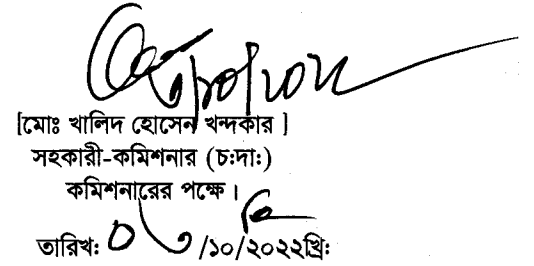 [মোঃ খালিদ হোসেন খন্দকার ]
সহকারী-কমিশনার (চ:দা:)
কমিশনারের পক্ষে।
তারিখ: ০৩/১০/২০২২খ্রি: